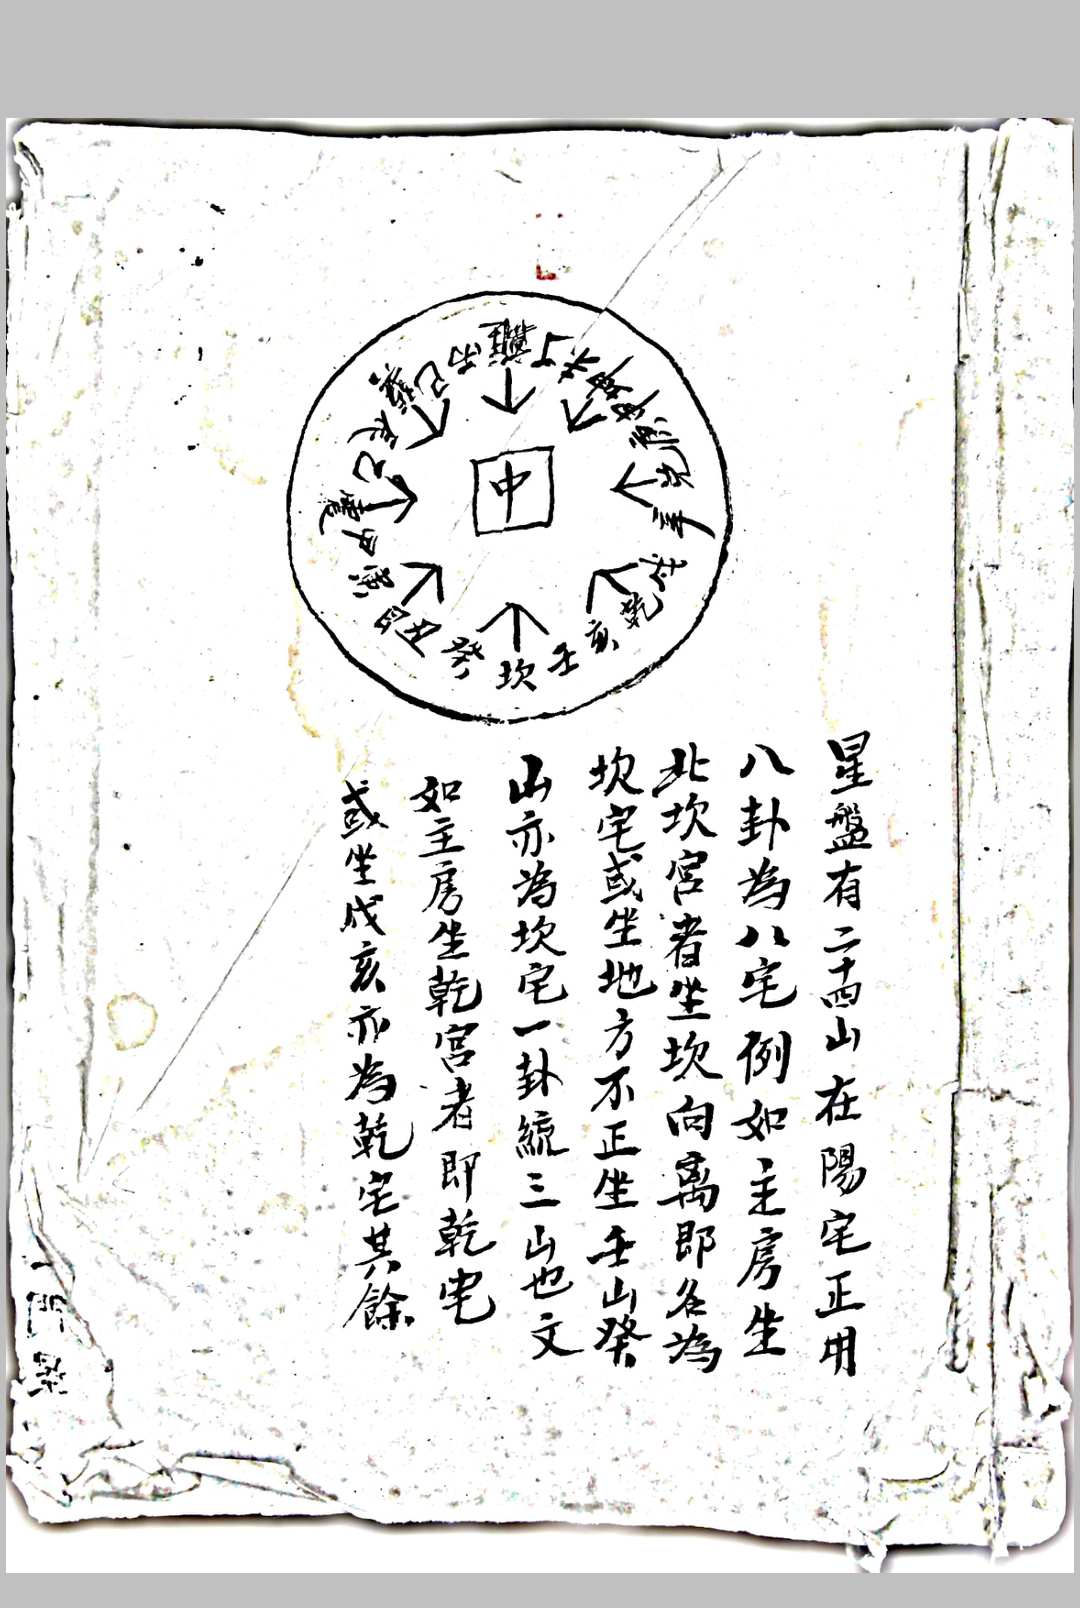 星盤有二十四山在陽宅正用
八卦為八宅例如主房坐
北坎宮者坐坎向离即名為
坎宅或坐地方不正坐壬山癸
山亦為坎宅一卦統三山也文
如主房坐乾宮者即乾宅
或坐戌亥亦為乾宅其餘
中
離
丙
巳
辰
甲
寅
丑
癸
坎
壬
亥
乾
戌
辛
兌
坤
未
丁